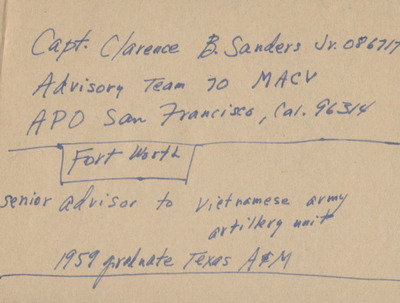 Capt. Clarence B. Sanders Jr. 086717
Advisory Team 70 MACV
APO San Francisco, Cal. 96314
Fort Worth
senior advisor to Vietnamese army
artillery unit
1959 graduate Texas A&M